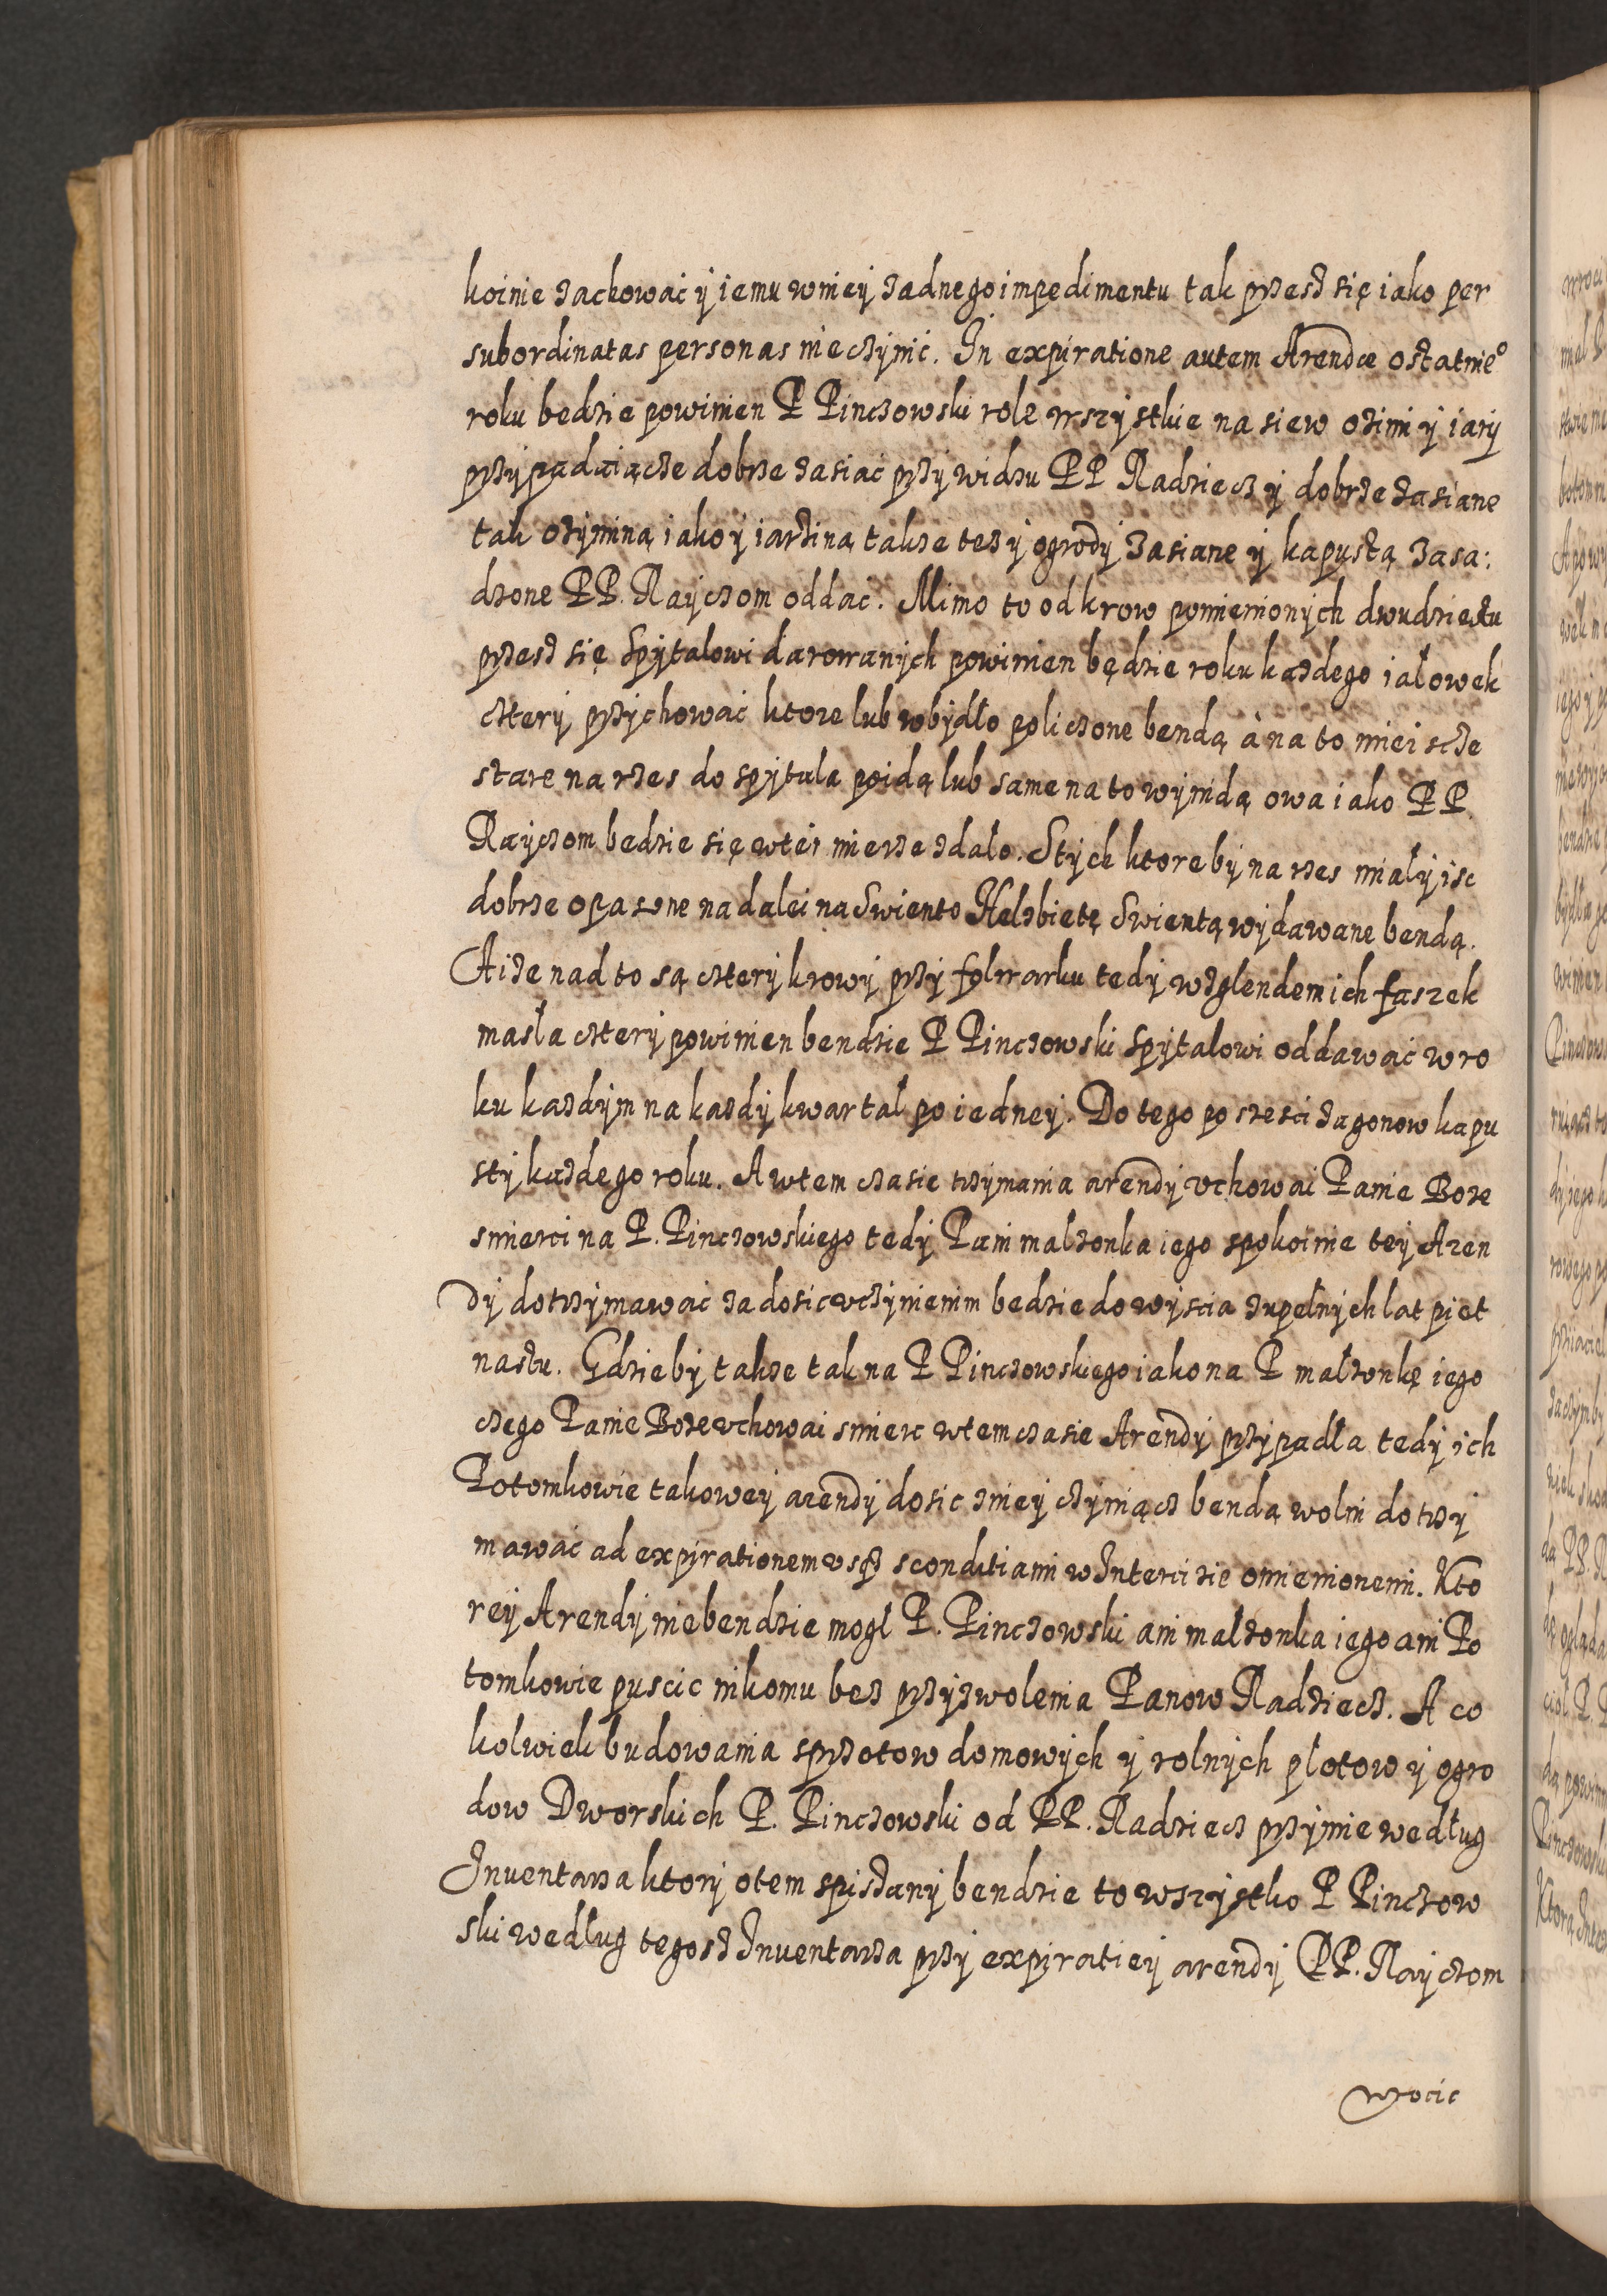 koinie zachować y iemu wniey żadnego impedimentu tak przesz się iako per
subordinatas personas nieczynić. In expiratione autem Arendæ ostatnie°
roku bedzie powinien P Pinczowski role wszystkie na siew ozimi y iary
przypadaiącze dobrze zasiać przy widzu PP Radziecz y dobrze zasiane
tak ozyminą iako y iarziną takze tesz y ogrody zasiane y kapustą zasa:
dzone PP. Rayczom oddać. Mimo to od krow pomienionych dwudziestu
przesz się Spytalowi darowanych powinien będzie roku każdego iałowek
cztery przychować ktore lub wbydło policzone bendą à na to mieiscze
stare na rzes do spytala poidą lub same na to wynidą owa iako PP.
Rayczom bedzie się wtei mierze zdało. Stych ktoreby na rzes miały isc
dobrze opasone nadalei na Swiento Helzbietę Swientą wydawane bendą.
A isze nad to są cztery krowy przy folwarku tedy wzglendem ich faszek
masła cztery powinien bendzie P Pinczowski Spytalowi oddawać w ro
ku każdym na kazdy kwartał po iedney. Do tego po szesci zagonow kapu
sty każdego roku. A wtem czasie trzymania arendy vchowai Panie Boze
smierci na P. Pinczowskiego tedy Pani malzonka iego spokoinie tey Aren
dy dotrzymawać za dosic vczynienim bedzie do wyscia zupełnych lat piet
nastu. Gdzieby takze tak na P Pinczowskiego iako na P małzonkę iego
czego Panie Boze vchowai smierc wtem czasie Arendy przypadła tedy ich
Potomkowie takowey arendy dosic zniey czyniącz bendą wolni dotrzy
mawać ad expirationem vsqz sconditiami w Intercizie omienionemi. Kto
rey Arendy niebendzie mogl P. Pinczowski ani malzonka iego ani Po
tomkowie puscic nikomu bez przyzwolenia Panow Radziecz. A co
kolwiek budowania sprzotow domowych y rolnych płotow y ogro
dow Dworskich P. Pinczowski od PP. Radziecz przymie według
Inventarza ktory otem spiszany bendzie to wszystko P Pinczow
ski według tegosz Inventarza przy expiratiey arendy PP. Rayczom
wrocic